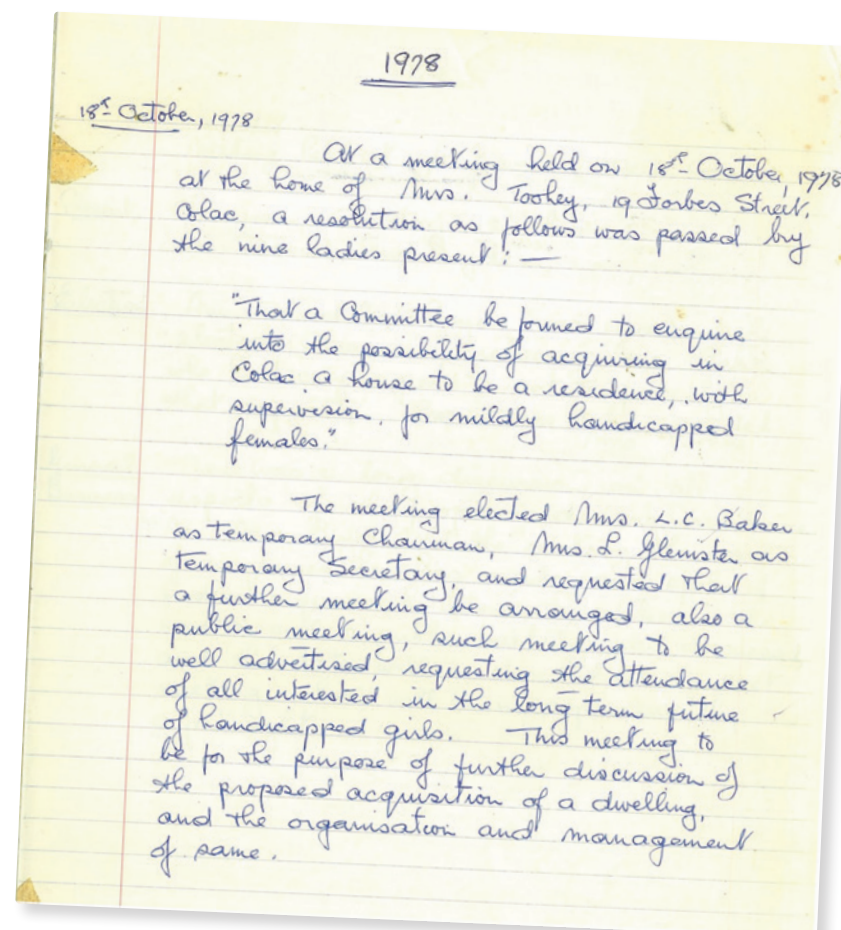 1978
18th October, 1978
At a meeting held on 18th October, 1978
at the home of Mrs. Toohey, 19 Forbes Street,
Colac, a resolution as follows was passed by
the nine ladies present :—
"That a Committee be formed to enquire
into the possibility of acquiring in
Colac a house to be a residence, with
supervision, for mildly handicapped
females."
The meeting elected Mrs. L.C. Baker
as temporary Chairman, Mrs. L. Glenister as
temporary Secretary, and requested that
a further meeting be arranged, also a
public meeting, such meeting to be
well advertised, requesting the attendance
of all interested in the long term future
of handicapped girls. This meeting to
be for the purpose of further discussion of
the proposed acquisition of a dwelling,
and the organisation and management
of same.